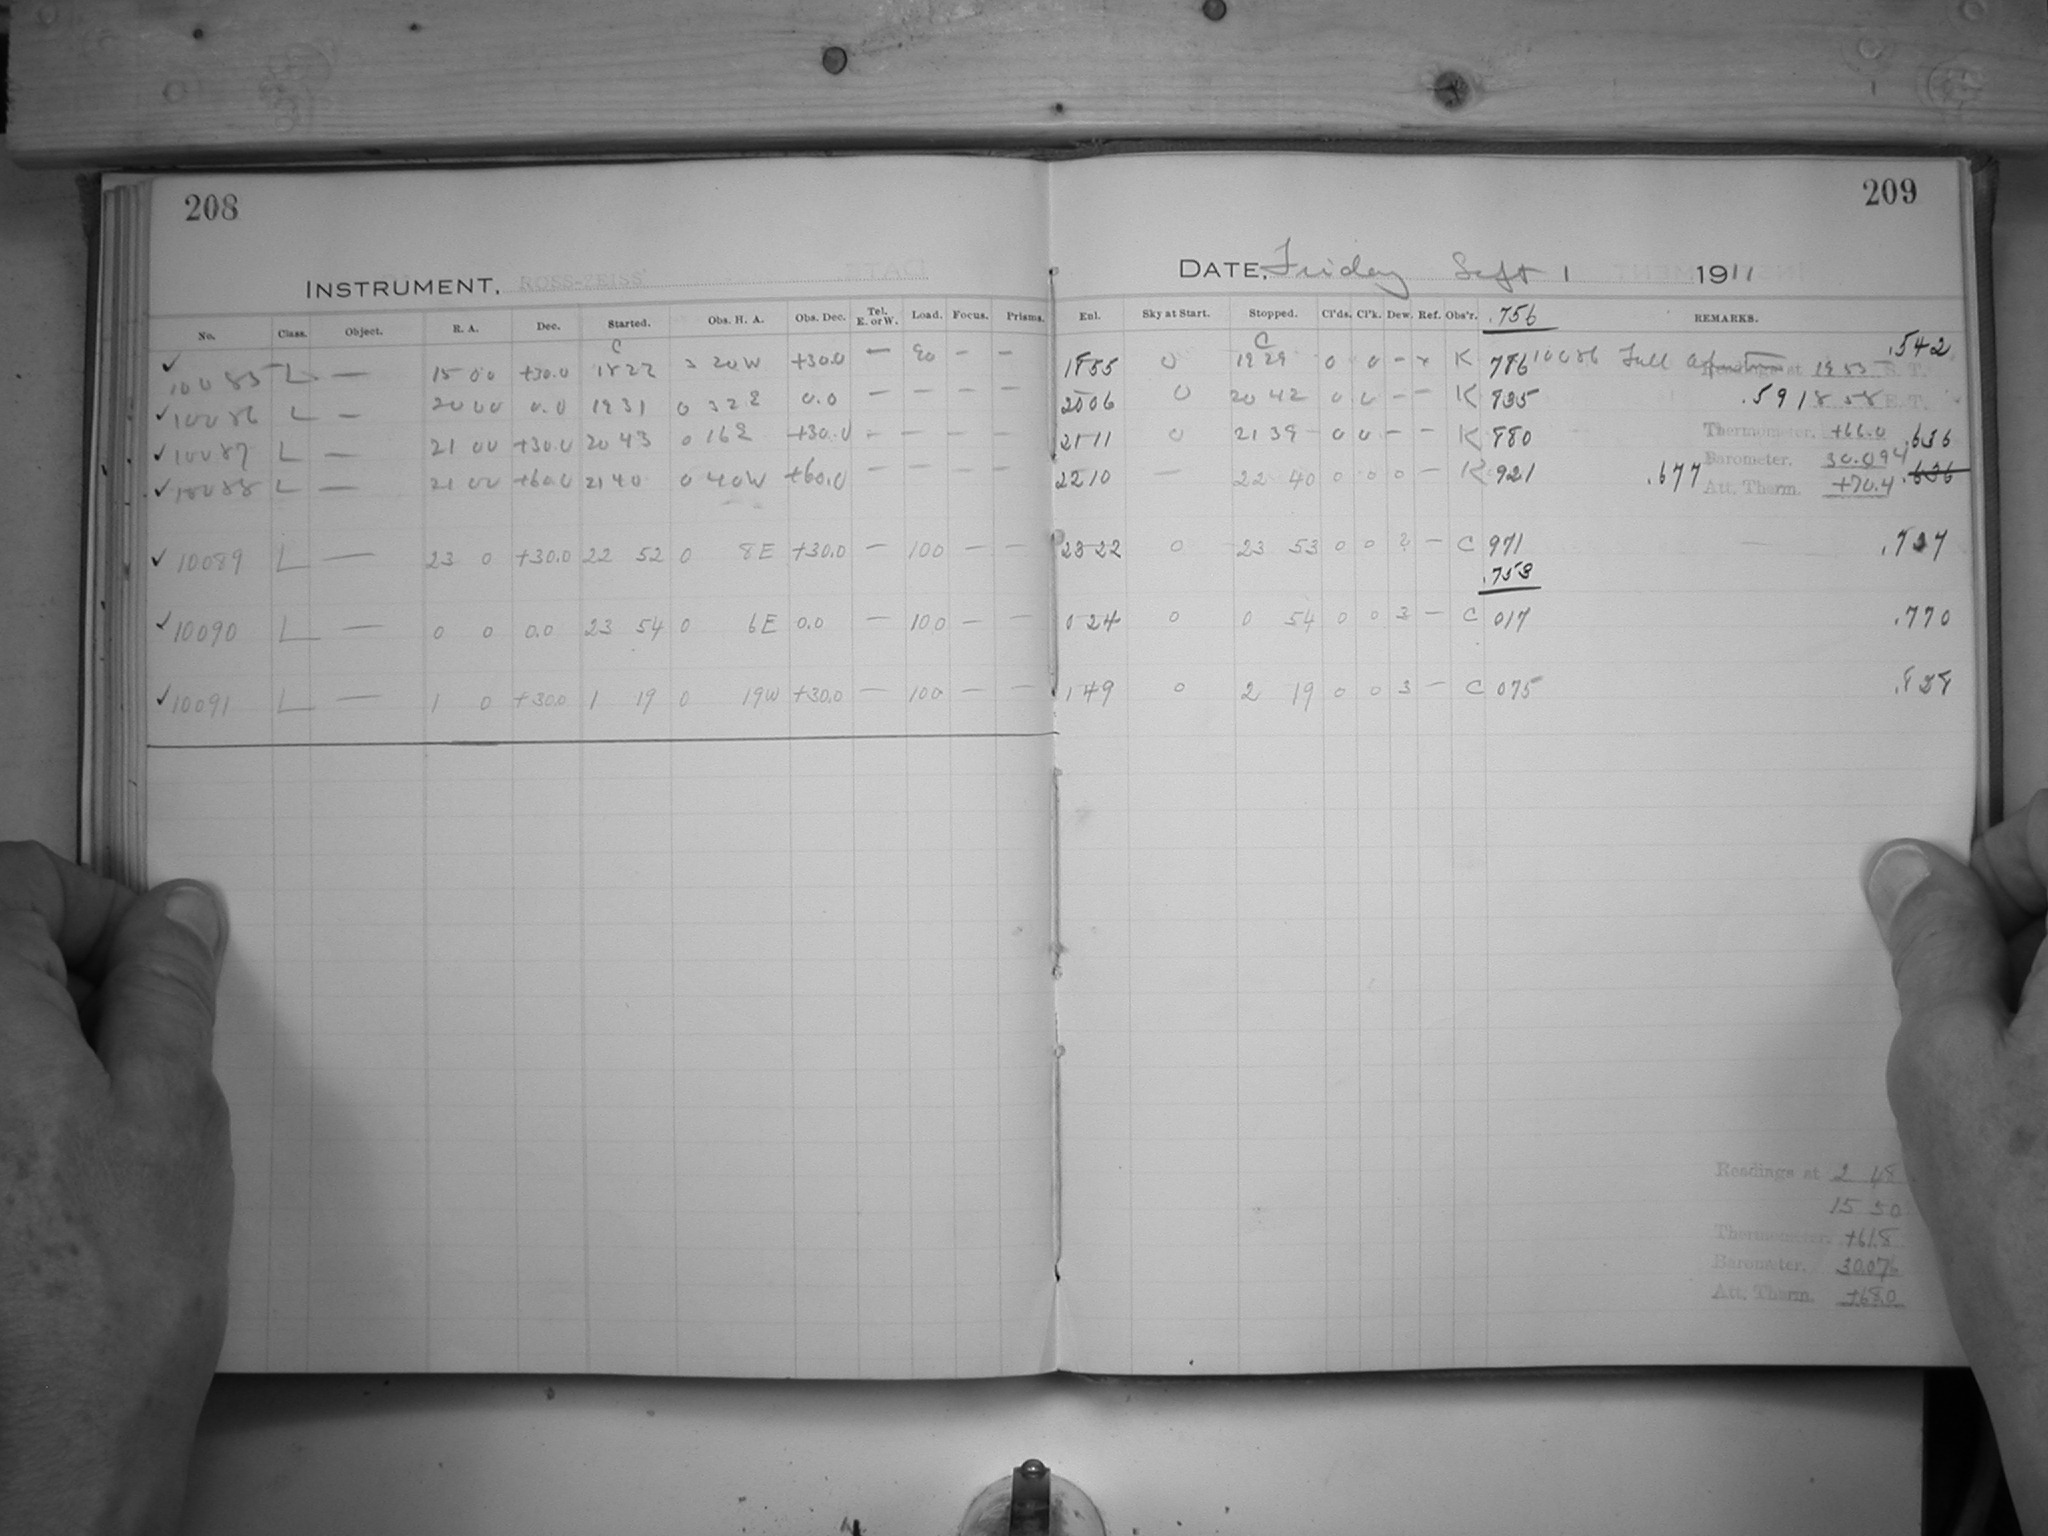 208
209
INSTRUMENT, ROSS-ZEISS
DATE, Friday Sept 1 1911
No. Class. Object. R. A. Dec. Started. Obs. H. A. Obs. Dec. Tel. E. or W. Load. Focus. Prisms. Enl. Sky at Start. Stopped. Cl'ds. Cl'k. Dew. Ref. Obs'r. .756 REMARKS.
C C .542
✓ 10085 L — 15 00 +30.0 1822 3 20W +30.0 — 90 — — 1855 0 1929 0 0 — K 786 10086 Full
Readings at 1953 S. T.
✓ 10086 L — 20 00 0.0 1931 0 32E 0.0 — — — — 2006 0 20 42 0 0 — — K 835 .591 858 E. T.
✓ 10087 L — 21 00 +30.0 20 43 0 16E +30.0 — — — — 2111 0 21 39 0 0 — — K 880 Thermometer. +66.0 .636
Barometer. 30.094
✓ 10088 L — 21 00 +60.0 21 40 0 40W +60.0 — — — — 2210 — 22 40 0 0 0 — K 921 .677 Att. Therm. +70.4 .636
✓ 10089 L — 23 0 +30.0 22 52 0 8E +30.0 — 100 — — 23 22 0 23 53 0 0 2 — C 971 .727
.753
✓ 10090 L — 0 0 0.0 23 54 0 6E 0.0 — 100 — — 0 24 0 0 54 0 0 3 — C 017 .770
✓ 10091 L — 1 0 +30.0 1 19 0 19W +30.0 — 100 — — 1 49 0 2 19 0 0 3 — C 075 .828
Readings at 2 48
15 50
Thermometer. +61.8
Barometer. 30.076
Att. Therm. +68.0